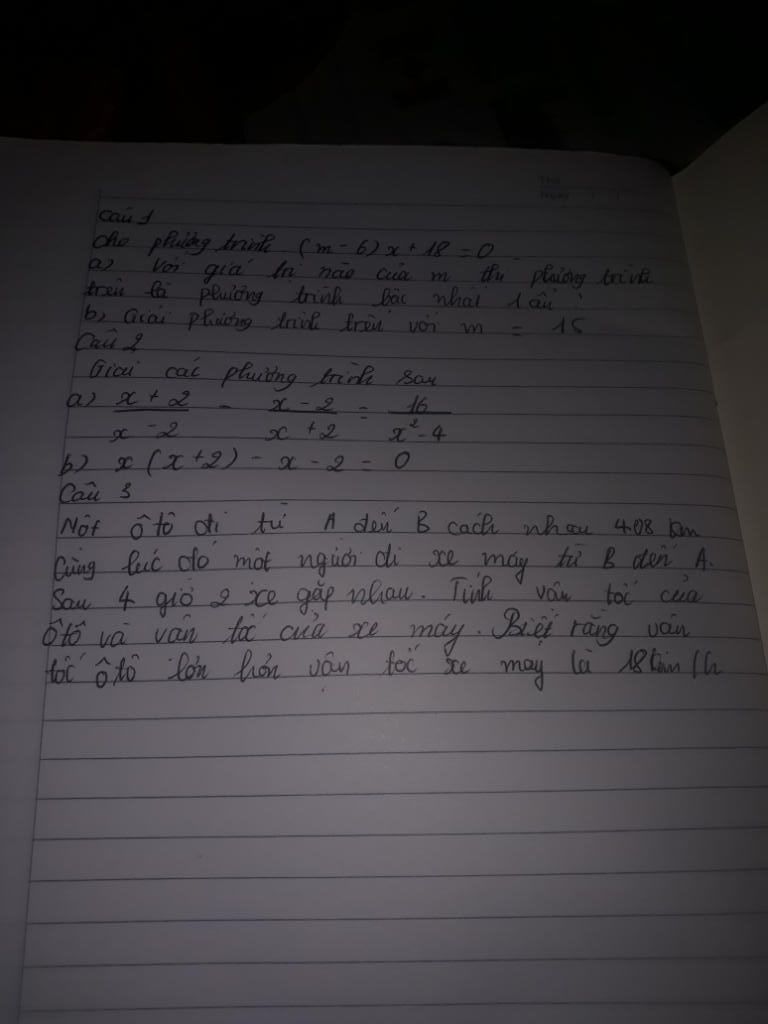 Câu 1
Cho phương trình (m - 6)x + 18 = 0
a) Với giá trị nào của m thì phương trình
trên là phương trình bậc nhất 1 ẩn ?
b, Giải phương trình trên với m = 15
Câu 2
Giải các phương trình sau
a) x + 2 / x - 2 - x - 2 / x + 2 = 16 / x² - 4
b) x (x + 2) - x - 2 = 0
Câu 3
Một ô tô đi từ A đến B cách nhau 408 km
Cùng lúc đó một người đi xe máy từ B đến A.
Sau 4 giờ 2 xe gặp nhau. Tính vận tốc của
Ô tô và vận tốc của xe máy. Biết rằng vận
tốc ô tô lớn hơn vận tốc xe máy là 18 km/h